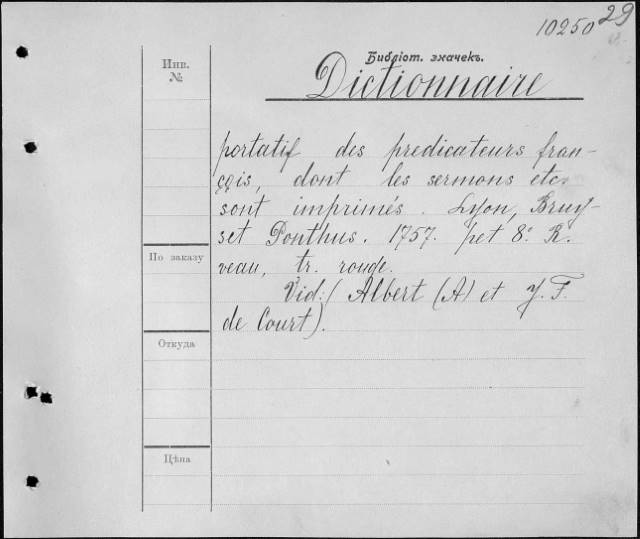 10250 29
Библіот. значекъ.
Инв.
№
Dictionnaire
portatif des predicateurs fran-
çois, dont les sermons etc.
sont imprimés. Lyon, Bruy-
set Ponthus. 1757. pet 8º R.
По заказу
veau, tr. rouge.
Vid: (Albert (A) et J. F.
de Court).
Откуда
Цѣна